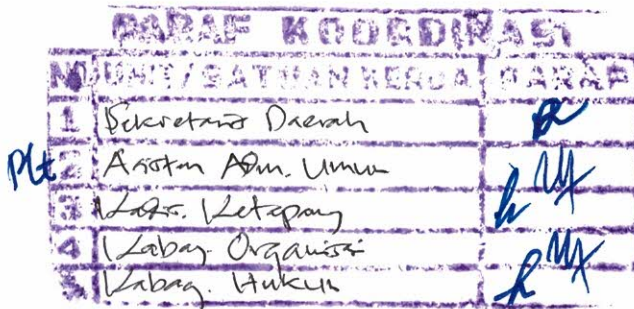 PARAF KOORDINASI
NO UNIT/SATUAN KERJA PARAF
1 Sekretaris Daerah
Plt 2 Asisten Adm. Umum
3 Ketapang
4 Kabag. Organisasi
5 Kabag. Hukum